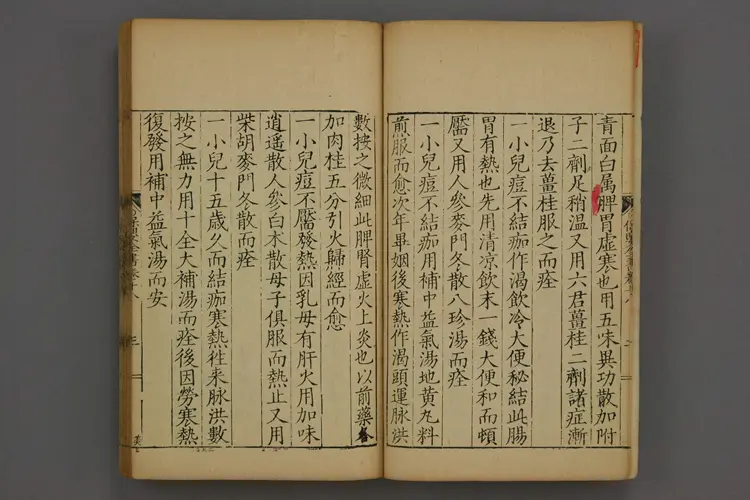 青面白属脾胃虛寒也用五味異功散加附
子二劑足稍温又用六君薑桂二劑諸症漸
退乃去薑桂服之而痊
一小兒痘不結痂作渴飲冷大便秘結此腸
胃有熱也先用清凉飲末一錢大便和而頓
靨又用人參麥門冬散八珍湯而痊
一小兒痘不結痂用補中益氣湯地黄丸料
煎服而愈次年畢姻後寒熱作渴頭運脉洪
數按之微細此脾腎虛火上炎也以前藥各
加肉桂五分引火歸經而愈
一小兒痘不靨發熱因乳母有肝火用加味
逍遥散人參白术散母子俱服而熱止又用
柴胡麥門冬散而痊
一小兒十五歲久而結痂寒熱徃来脉洪數
按之無力用十全大補湯而痊後因勞寒熱
復發用補中益氣湯而安